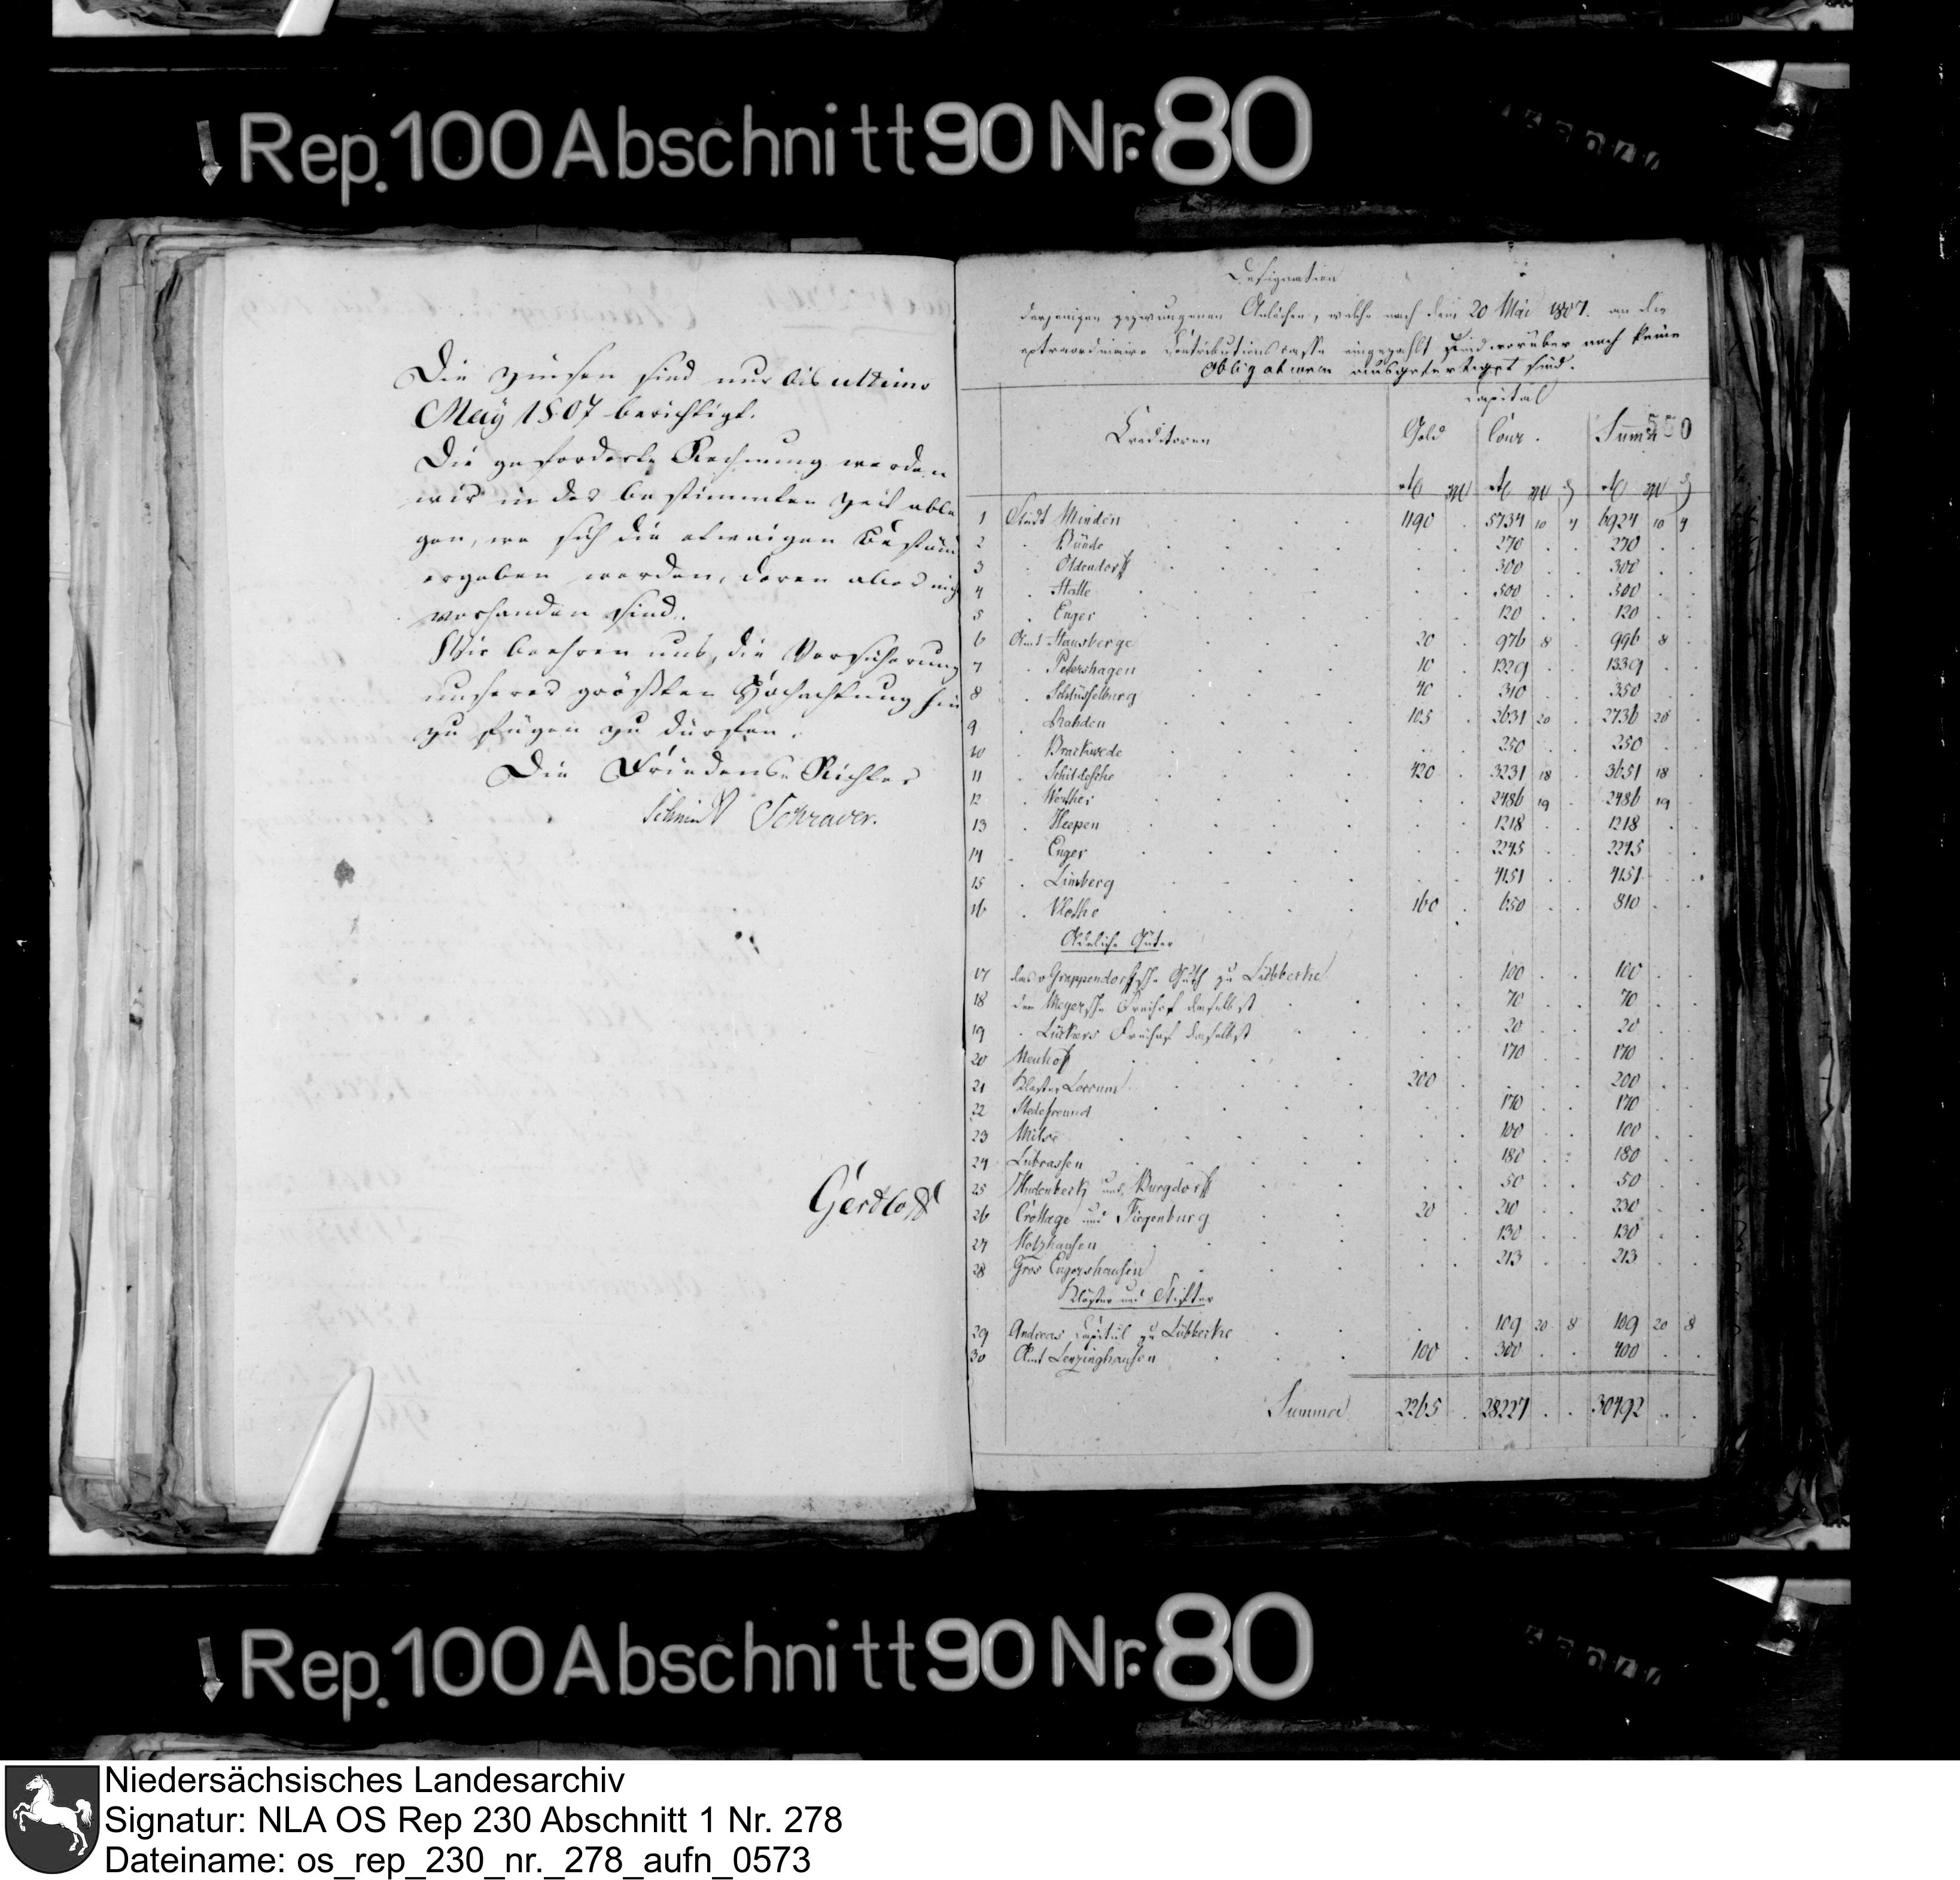 Rep. 100 Abschnitt 90 Nr. 80
Die Zinsen sind nur bis ultimo
May 1807 berichtigt.
Die geforderte Rechnung werden
wir in der bestimmten Zeit able
gen, wo sich die etwaigen Bestän
ergeben werden, deren aber nicht
vorhanden sind.
Wir beehren uns, die Versicherung
unserer größten Hochachtung hin
zu fügen zu dürfen.
Die Friedens Richter
Schmidt Schrader.
Gerdtoff
Designation
derjenigen gezwungenen Anleihen, welche nach dem 20 Mai 1807. an die
extraordinaire Contributions casse eingezahlt und worüber noch keine
Obligationen ausgefertiget sind.
Capital
Creditoren Gold Cour. Summa 550
rtl mgr rtl mgr d rtl mgr d
1 Stadt Minden 1190 . 5734 10 4 6924 10 4
2 . Bünde . . 270 . . 270 . .
3 . Oldendorff . . 300 . . 300 . .
4 . Halle . . 500 . . 500 . .
5 . Enger . . 120 . . 120 . .
6 Amt Hausberge 20 . 976 8 . 996 8 .
7 . Petershagen 10 . 1329 . . 1339 . .
8 . Schlüsselburg 40 . 310 . . 350 . .
9 . Rahden 105 . 2631 20 . 2736 20 .
10 . Brackwede . . 250 . . 250 . .
11 . Schildesche 420 . 3231 18 . 3651 18 .
12 . Werther . . 2486 19 . 2486 19 .
13 . Heepen . . 1218 . . 1218 . .
14 . Enger . . 2245 . . 2245 . .
15 . Limberg . . 4151 . . 4151 . .
16 . Vlotho 160 . 650 . . 810 . .
Adeliche Güter
17 das v Grappendorffsche Guth zu Lübbecke . . 100 . . 100 . .
18 der Meyersche Freihof daselbst . . 70 . . 70 . .
19 . Lückers Freihof daselbst . . 20 . . 20 . .
20 Neuhoff . . 170 . . 170 . .
21 Kloster Loccum 200 . . . . 200 . .
22 Stedefreund . . 170 . . 170 . .
23 Milse . . 100 . . 100 . .
24 Lubrassen . . 180 . . 180 . .
25 Hudenbeck und Burgdorff . . 50 . . 50 . .
26 Crollage und Figenburg 20 . 210 . . 230 . .
27 Holzhausen . . 130 . . 130 . .
28 Gros Engershausen . . 213 . . 213 . .
Klöster und Stifter
29 Andreas Capitul zu Lübbecke . . 109 20 8 109 20 8
30 Amt Lenzinghausen 100 . 300 . . 400 . .
Summa 2265 . 28227 . . 30492 . .
Rep. 100 Abschnitt 90 Nr. 80
Niedersächsisches Landesarchiv
Signatur: NLA OS Rep 230 Abschnitt 1 Nr. 278
Dateiname: os_rep_230_nr._278_aufn_0573